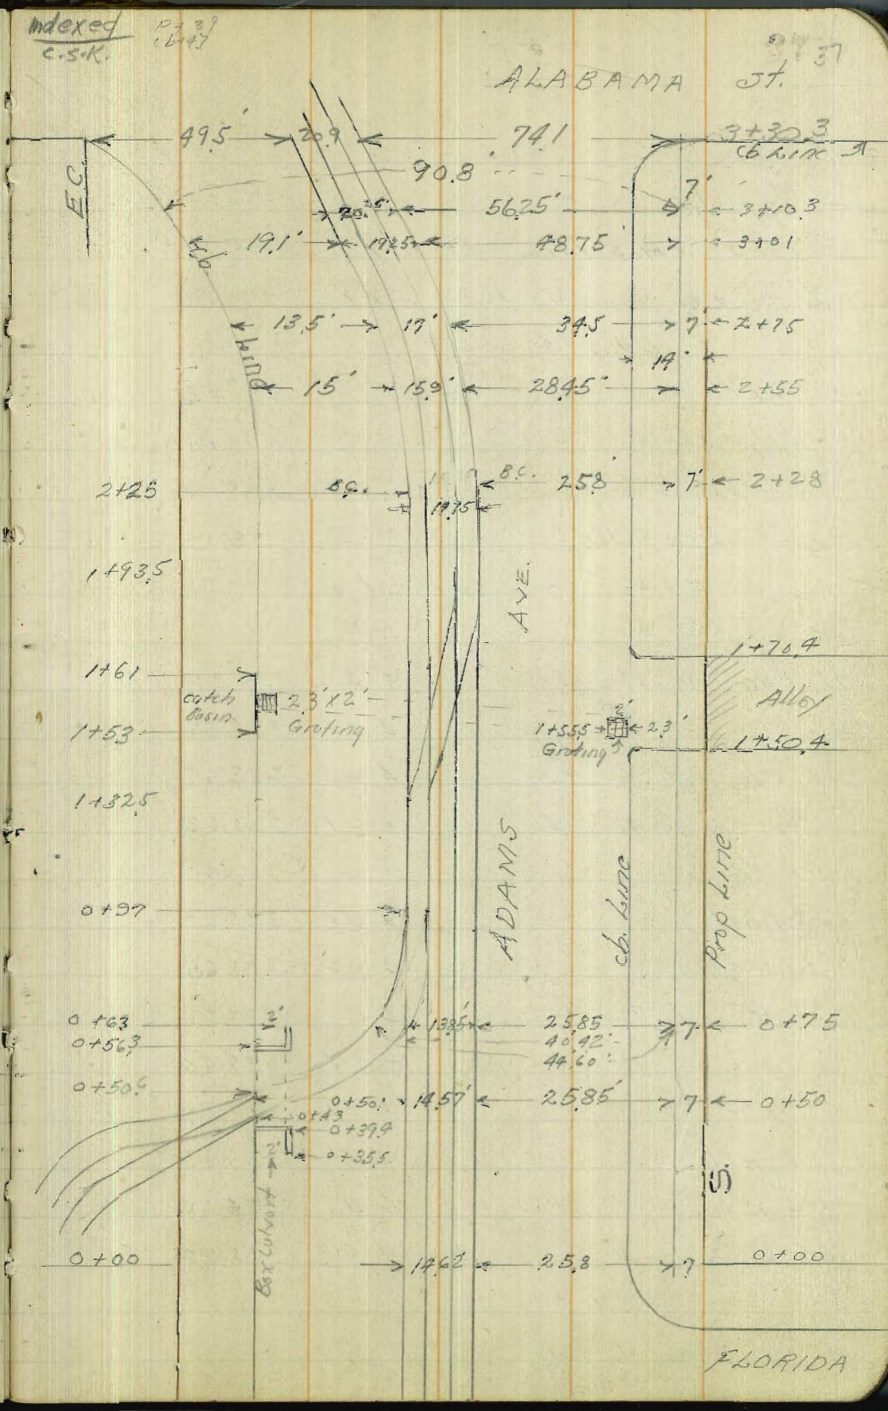 Indexed
C.S.K.
37
ALABAMA St.
49.5' 20.9 74.1 3+30.3
cb Line
E.C. 90.8' 7'
20.25' 56.25' 3+10.3
cb 19.1' 19.25 48.75' 3+01
13.5' 17' 34.5 7' 2+75
14'
Ditch 15' 15.9' 28.45' 2+55
2+25 B.C. B.C. 25.8' 7' 2+28
14.75
1+93.5
AVE.
1+70.4
1+61
catch Basin 2.3' X 2' Grating
2'
1+55.5 2.3'
Grating
Alley
1+53
1+50.4
1+32.5
ADAMS
cb. Line
Prop Line
0+97
0+63 2' 13.85' 25.85 7 0+75
0+56.3 40.42'
44.60'
0+50.6 0+50. 14.57' 25.85' 7 0+50
0+43
0+39.4
2' 0+35.5
S.
Box Culvert
0+00 14.62' 25.8 7 0+00
FLORIDA